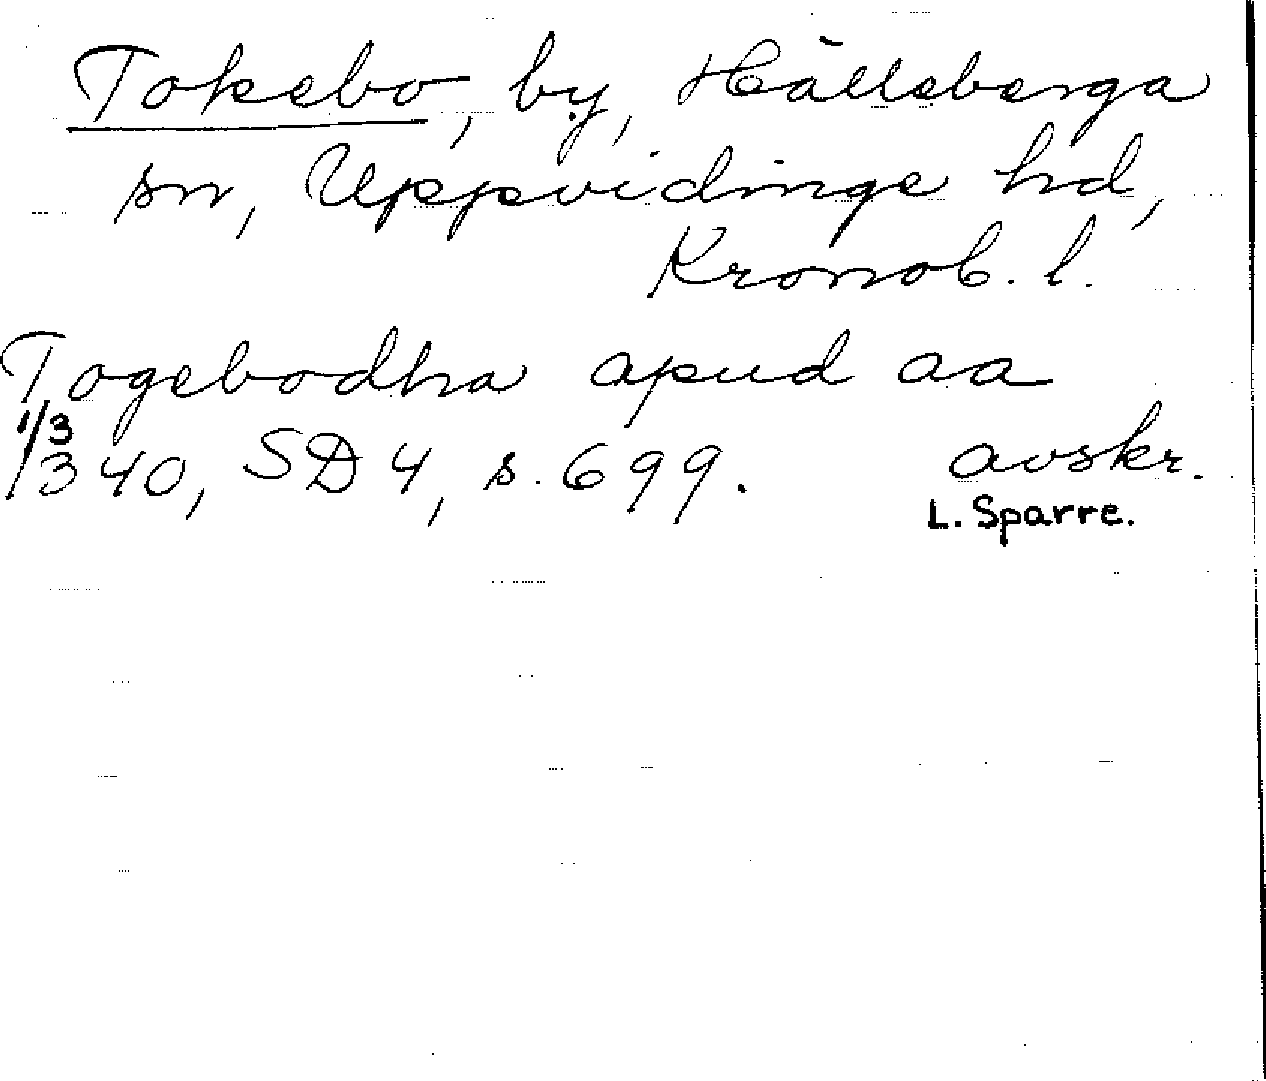 Tokebo, by, Hälleberga
sn, Uppvidinge hd,
Kronob. l.
Togebodha apud aa
1/3
1340, SD 4, s. 699. avskr.
L. Sparre.